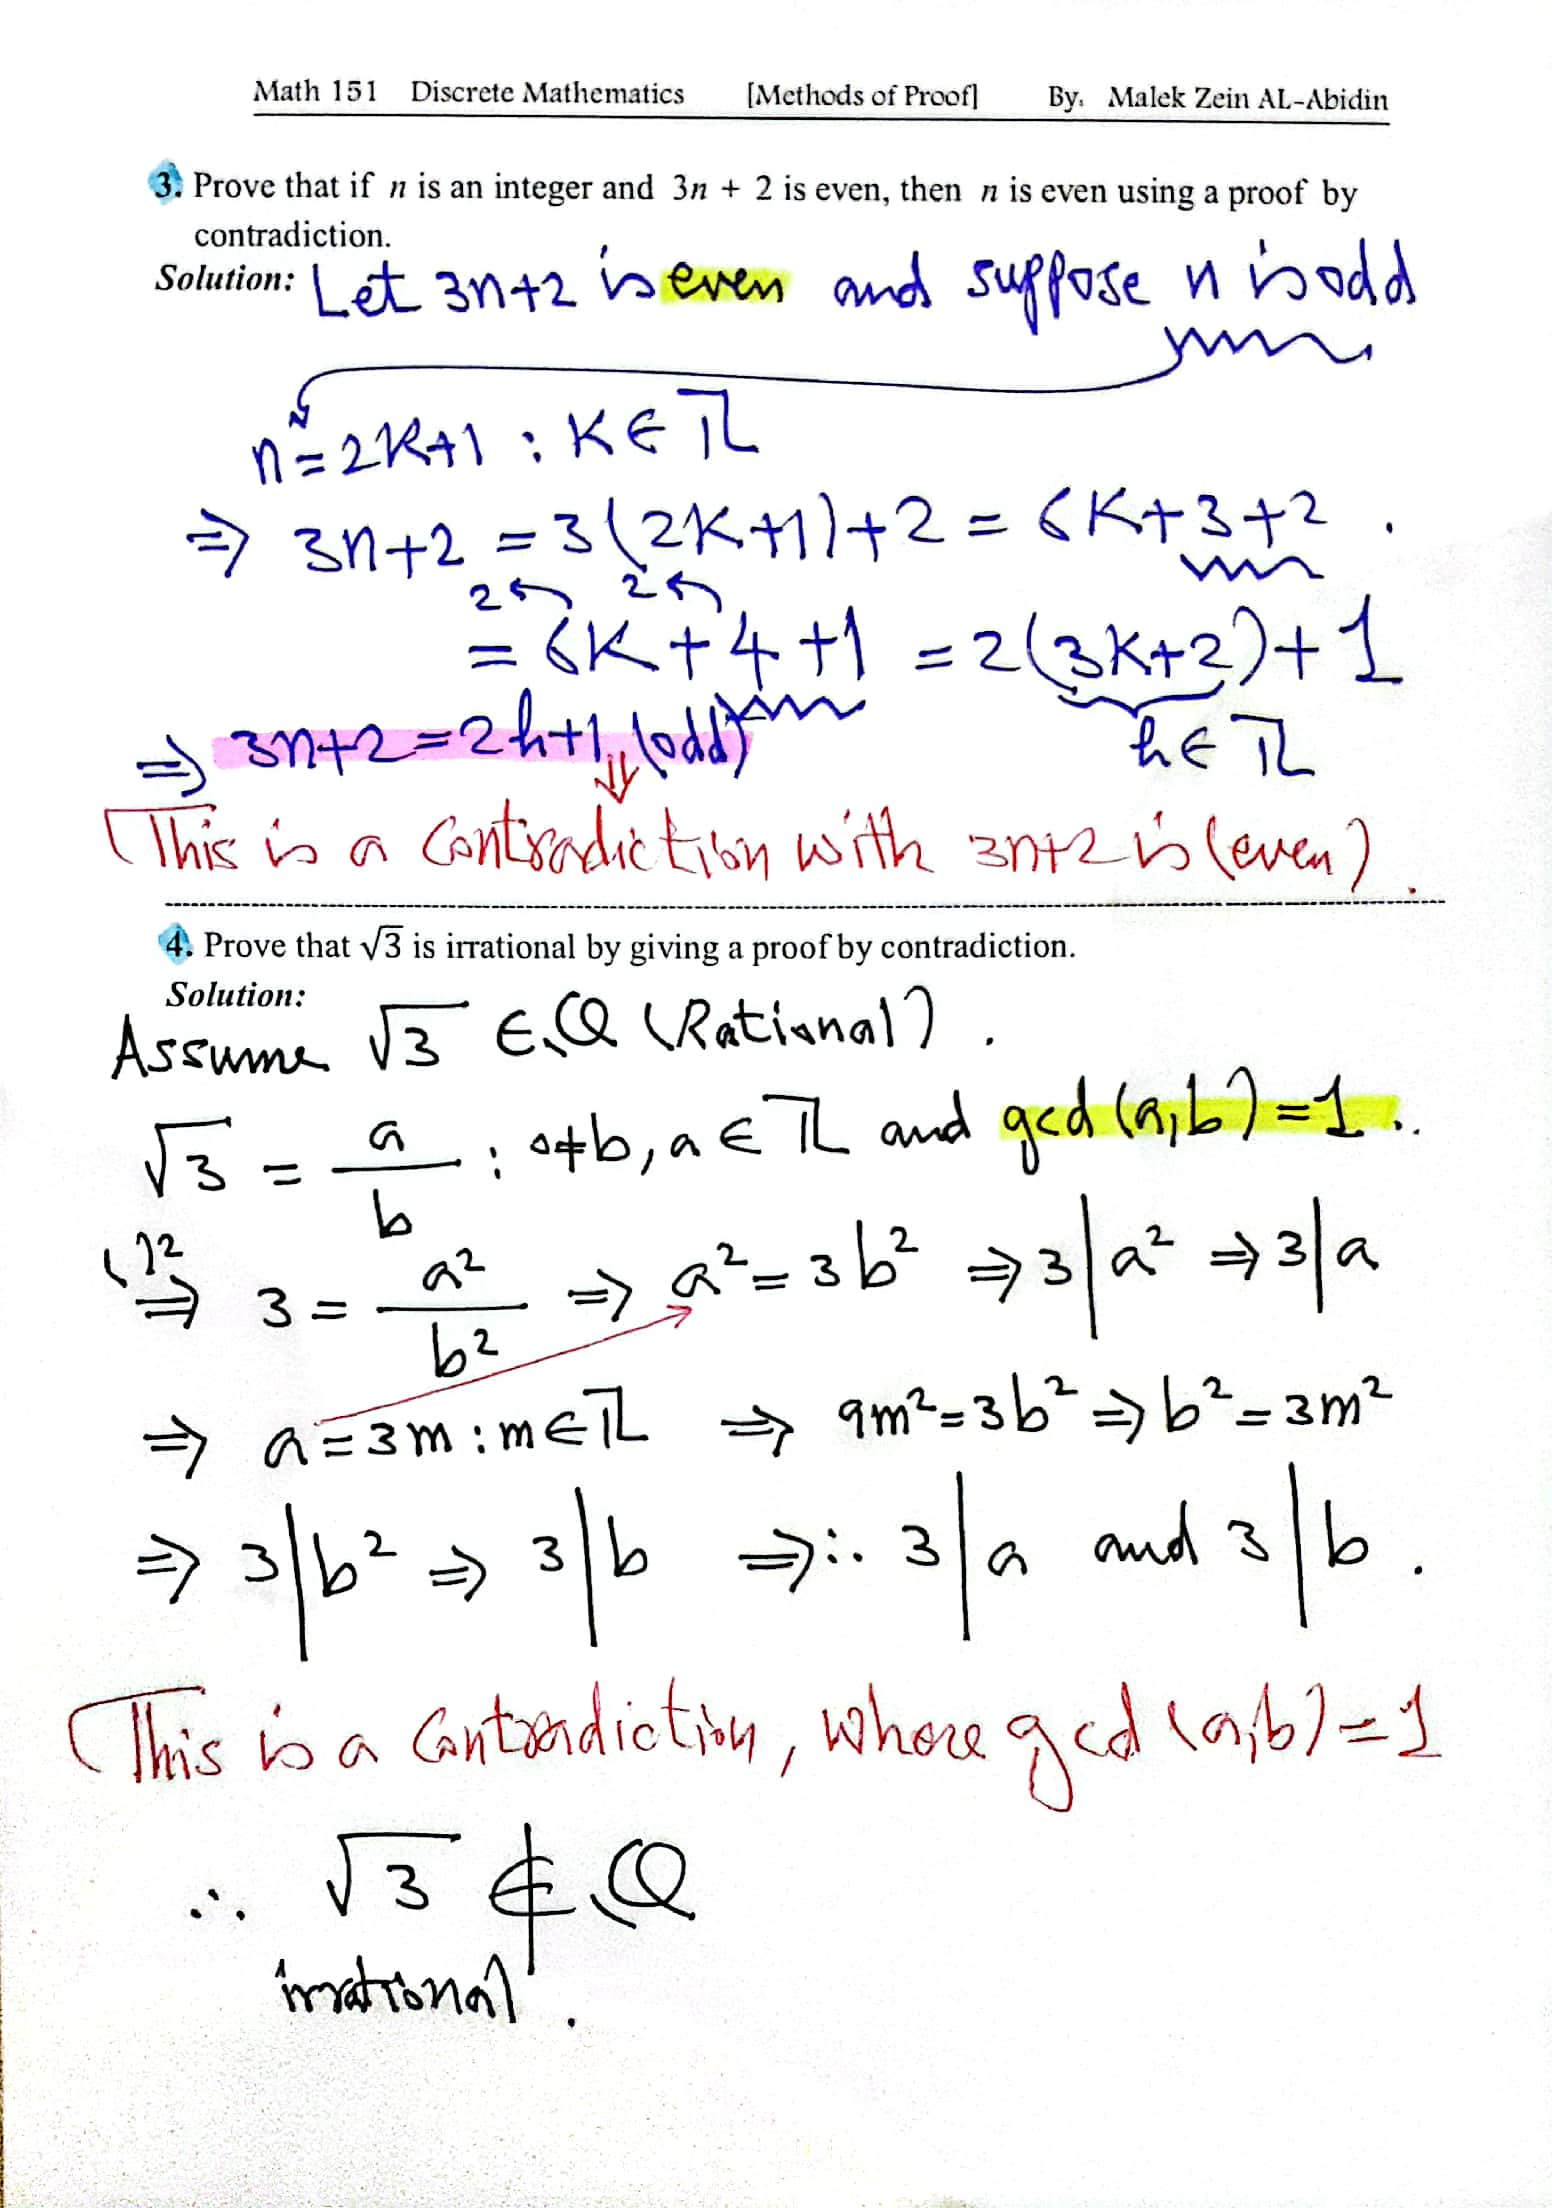 Math 151 Discrete Mathematics [Methods of Proof] By. Malek Zein AL-Abidin
3. Prove that if n is an integer and 3n + 2 is even, then n is even using a proof by
contradiction.
Solution: Let 3n+2 is even and suppose n is odd
n=2K+1 : K∈ℤ
⇒ 3n+2 = 3(2K+1)+2 = 6K+3+2 .
2 2
= 6K+4+1 = 2(3K+2)+1
⇒ 3n+2=2h+1 (odd) h∈ℤ
⇓
(This is a Contradiction with 3n+2 is (even).
4. Prove that √3 is irrational by giving a proof by contradiction.
Solution:
Assume √3 ∈ Q (Rational).
√3 = a/b ; 0≠b, a ∈ ℤ and gcd(a,b)=1..
( )² ⇒ 3 = a²/b² ⇒ a²=3b² ⇒ 3|a² ⇒ 3|a
⇒ a=3m : m∈ℤ ⇒ 9m²=3b² ⇒ b²=3m²
⇒ 3|b² ⇒ 3|b ⇒ ∴ 3|a and 3|b .
(This is a Contradiction, where gcd(a,b)=1
∴ √3 ∉ Q
irrational .